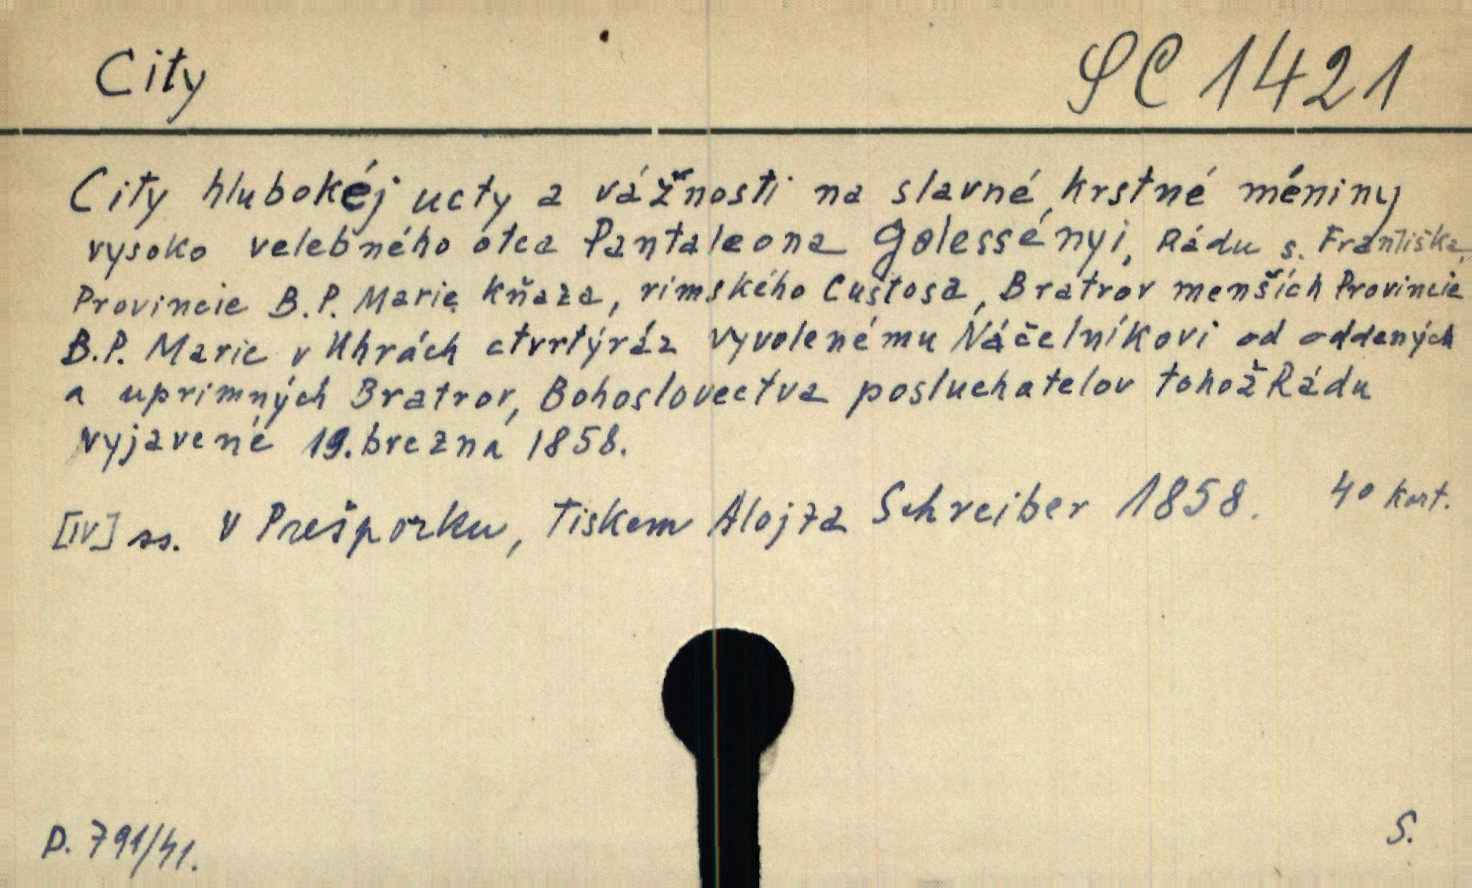 City
SC 1421
City hlubokéj ucty a vážnosti na slavné krstné méniny
vysoko velebného otca Pantaleona Golessényi, Rádu s. Františka,
Provincie B.P. Marie kňaza, rimského Custosa, Bratrov menších Provincie
B.P. Marie v Uhrách ctvrtýráz vyvolenému Náčelníkovi od oddaných
a uprimných Bratrov, Bohoslovectva posluchatelov tohož Rádu
vyjavené 19. brezna 1858.
[IV] ss. V Prešporku, Tiskem Alojza Schreiber 1858. 4° kart.
p. 791/41.
S.